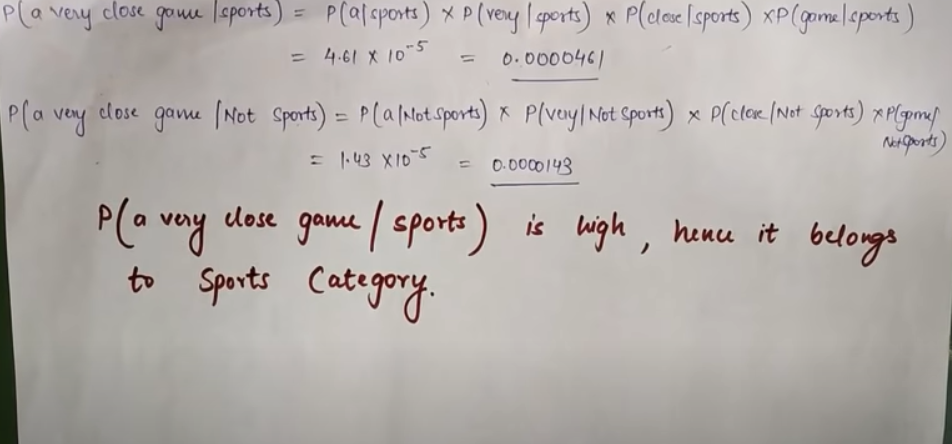 P(a very close game | sports) = P(a|sports) × P(very | sports) × P(close|sports) × P(game|sports)
= 4.61 × 10⁻⁵ = 0.0000461
P(a very close game /Not Sports) = P(a/Not sports) × P(very/Not sports) × P(close/Not sports) × P(game/
Not sports)
= 1.43 × 10⁻⁵ = 0.0000143
P(a very close game / sports) is high, hence it belongs
to Sports Category.